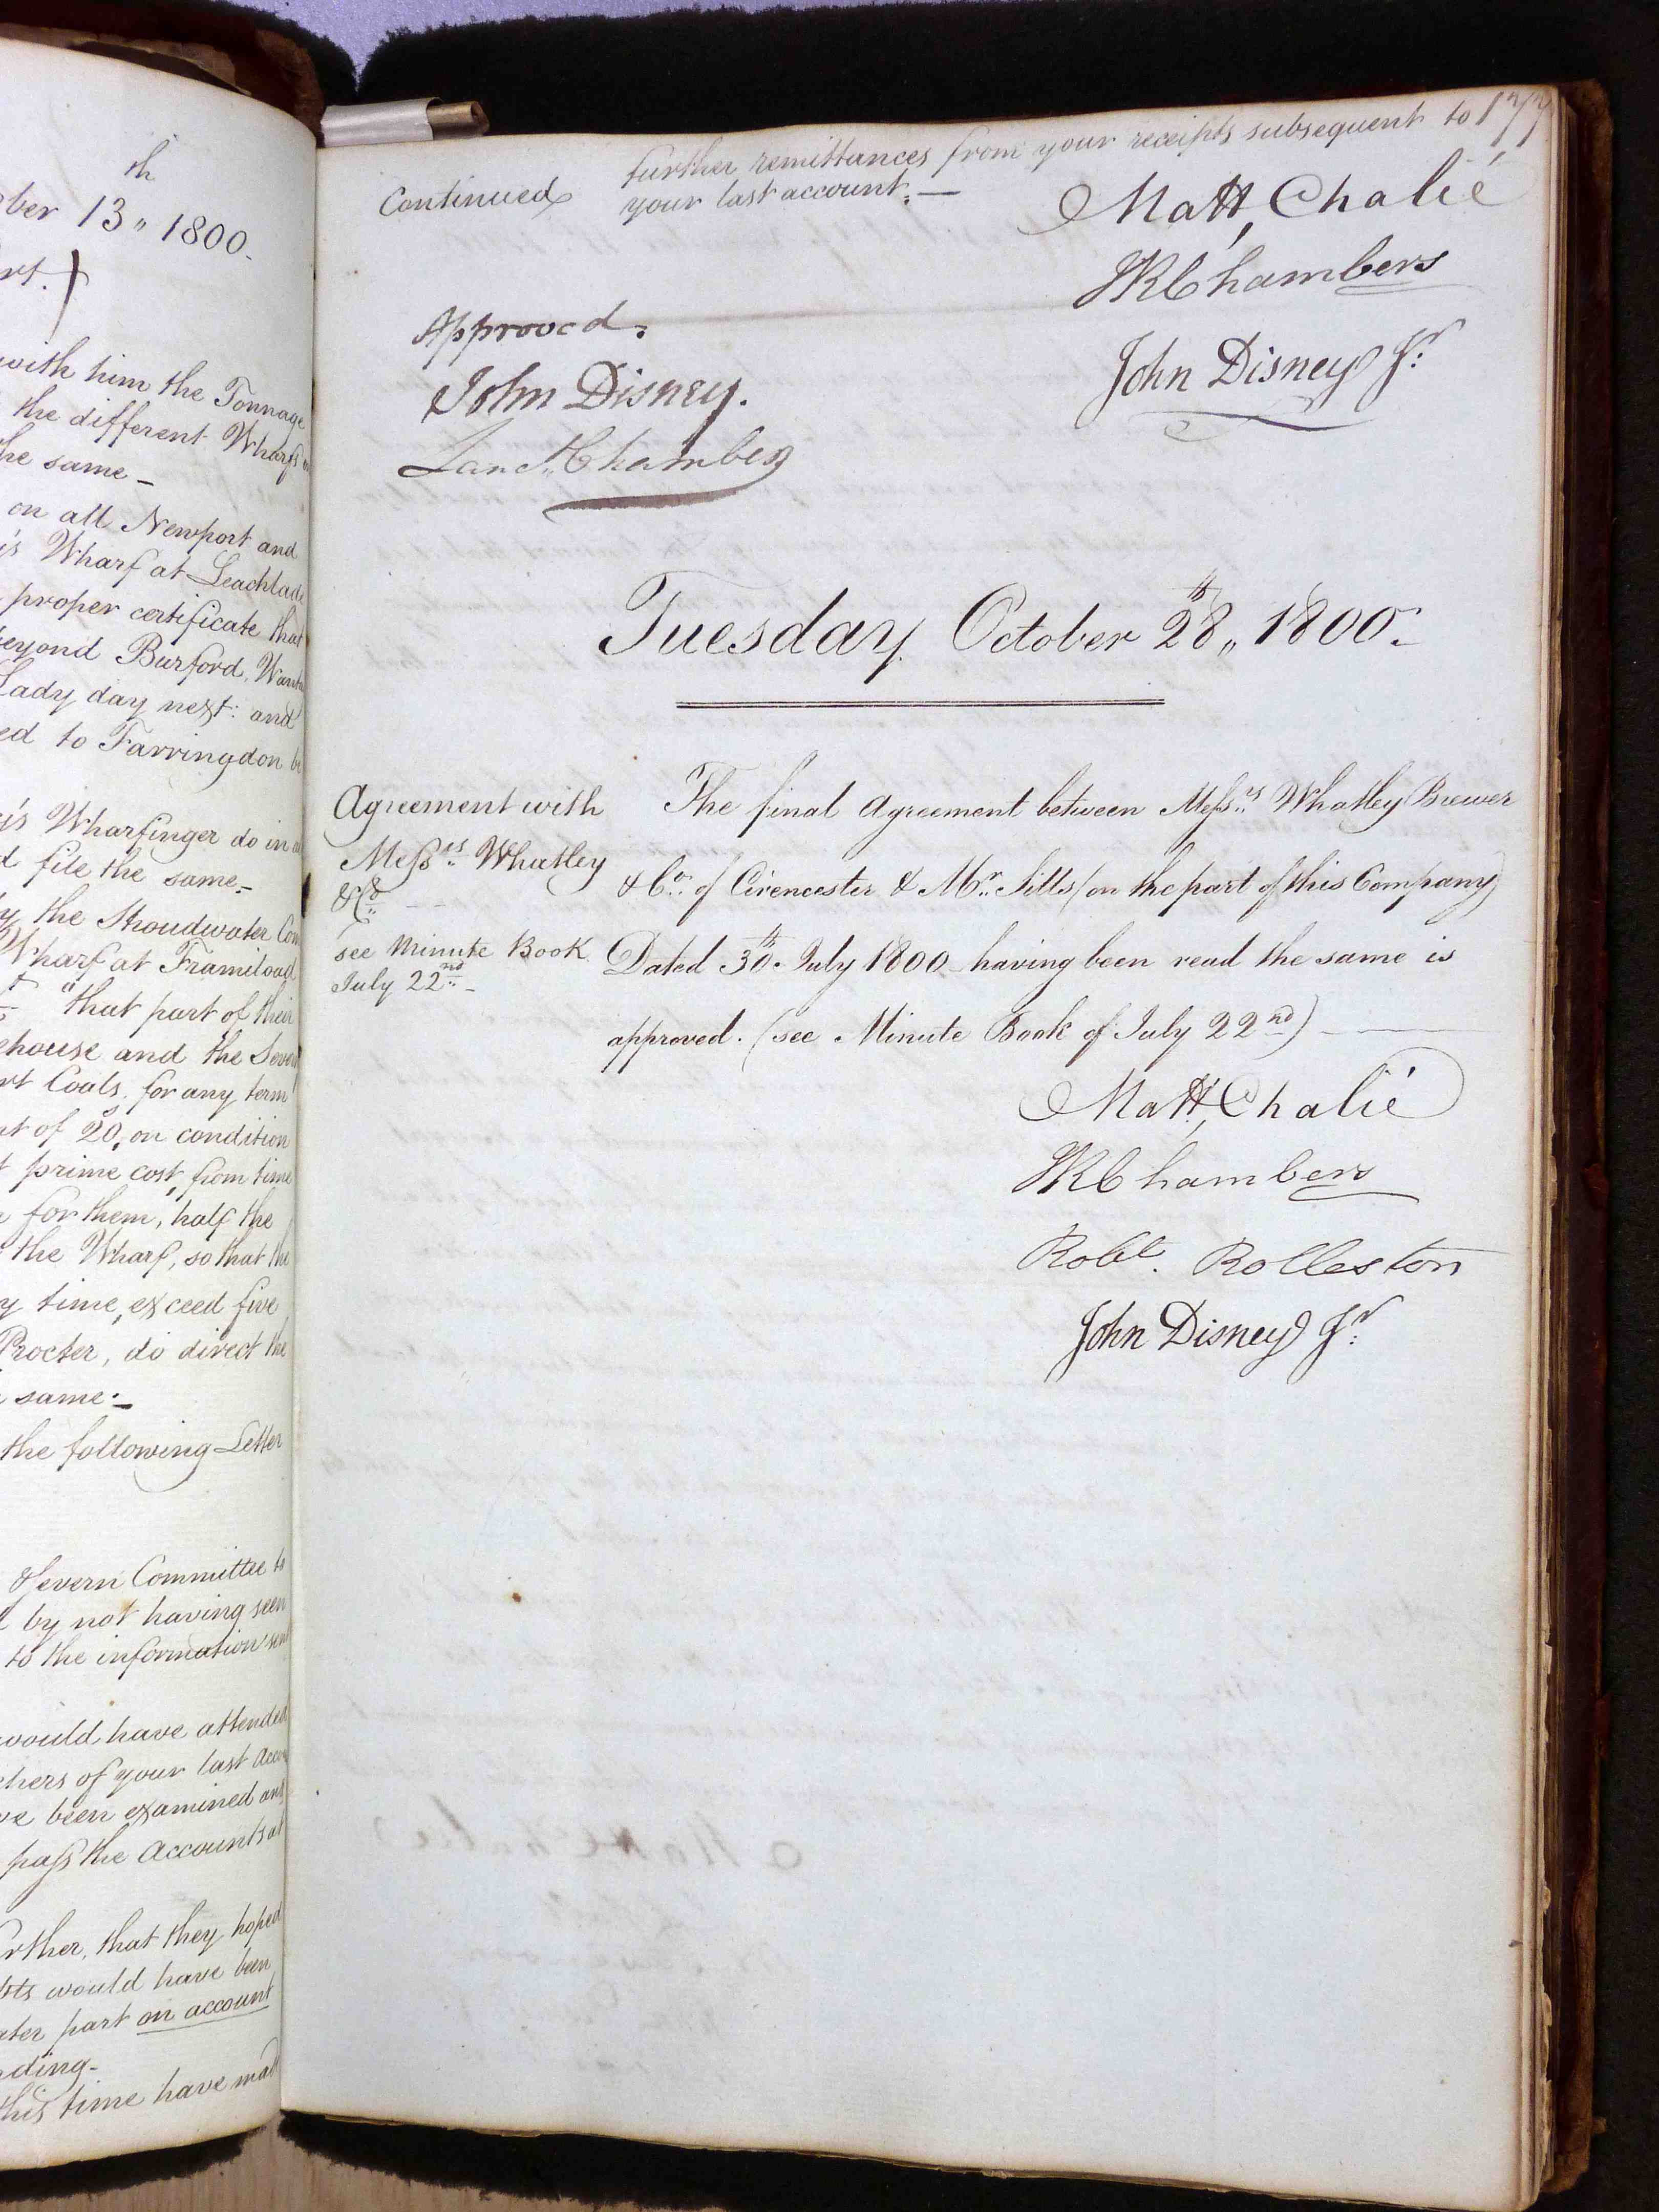 th
ber 13 " 1800.
rt. }
with him the Tonnage
the different Wharfs
he same _
on all Newport and
is Wharf at Leachlade
proper certificate that
beyond Burford,
Lady day next: and
ed to Farringdon
is Wharfinger do in
d file the same _
y the Stroudwater
Wharf at Framiload
"that part of their
ehouse and the
rt Coals, for any term
nt of 20, on condition
t prime cost, from time
for them, half the
the Wharf, so that the
y time, exceed five
Procter, do direct the
same._
the following Letter
Severn Committee to
by not having seen
to the information
would have attended
chers of your last
ve been examined and
paſs the Accounts
urther, that they hoped
would have been
ater part on account
ding-
this time have
177
Continued
further remittances from your receipts subsequent to
your last account. —
Matt. Chalié
JR Chambers
John Disney Jr.
Approved.
John Disney.
Chambers
Tuesday October 28th, 1800.
Agreement with
Meſsrs. Whatley
& Co.
see Minute Book
July 22nd. _
The final Agreement between Meſsrs. Whatley Brewer
& Co. of Cirencester & Mr. Sills (on the part of this Company)
Dated 30th. July 1800 having been read the same is
approved. (see Minute Book of July 22nd)
Matt. Chalié
JR Chambers
Robt. Rolleston
John Disney Jr.